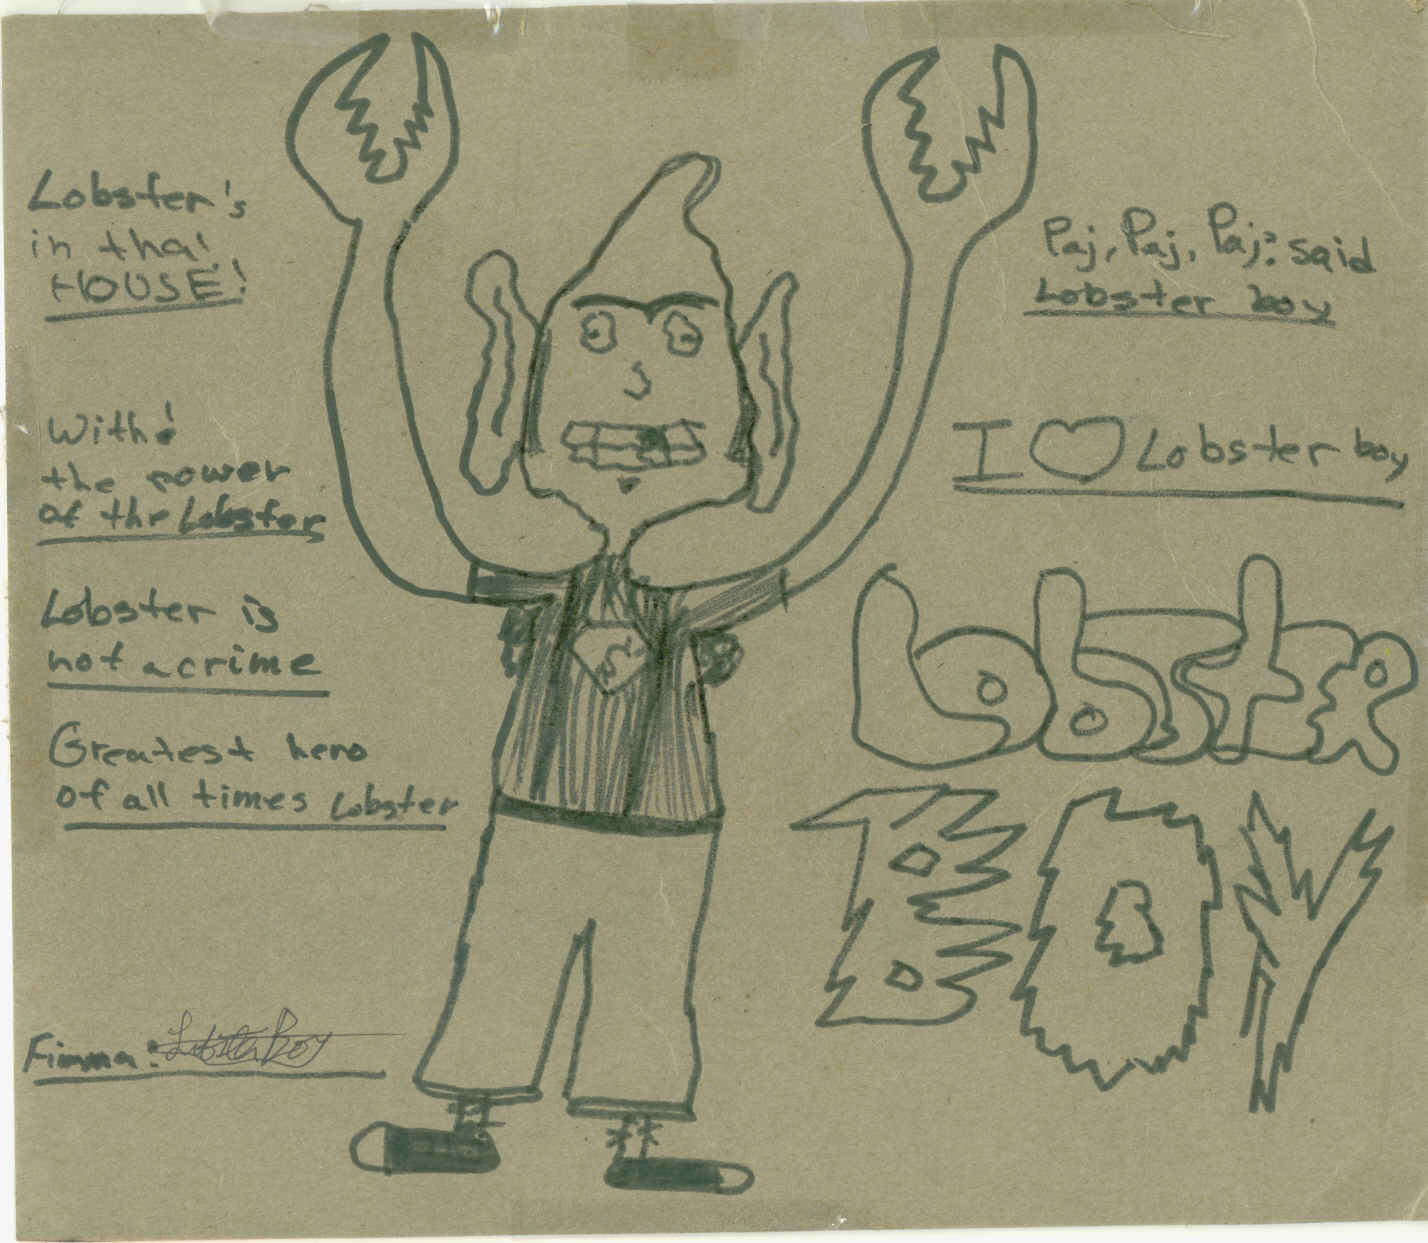 Lobster's
in tha'
HOUSE!
With
the power
of the Lobster
Lobster is
not a crime
Greatest hero
of all times Lobster
Fimma: Lobster Boy
Paj, Paj, Paj: said
Lobster boy
I ♡ Lobster boy
LobsTER
BOY
S